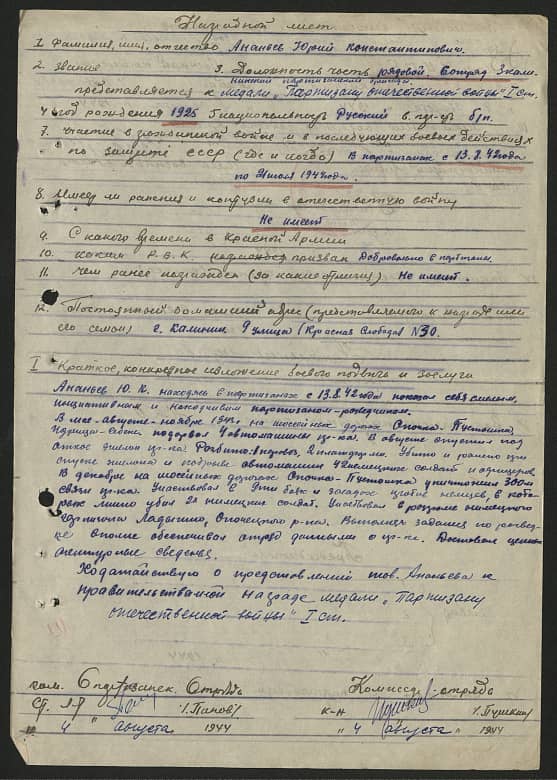 Наградной лист
1. Фамилия, имя, отчество Ананьев Юрий Константинович.
2. Звание 3. Должность, часть рядовой. 6 отряд 3 Кали-
нинской партизанской бригады.
представляется к медали „Партизану отечественной войны" I ст.
4. год рождения 1925 5 национальность Русский 6. партр. б/п.
7. участие в гражданской войне и в последующих боевых действиях
по защите СССР (где и когда) В партизанах с 13.8.42 года
по 1944 года.
8. Имеет ли ранения и контузии в отечественную войну
Не имеет
9. С какого времени в Красной Армии
10. каким Р.В.К. призван Добровольно в партизаны.
11. Чем ранее награжден (за какие отличия) Не имеет.
12. Постоянный домашний адрес (представляемого к награде или
его семьи) г. Калинин 9 улица (Красная Слобода) N 30.
I Краткое, конкретное изложение боевого подвига и заслуги
Ананьев Ю. К. находясь в партизанах с 13.8.42 года показал себя смелым,
инициативным и находчивым партизаном-разведчиком.
В мае-августе-ноябре на шоссейных дорогах Опочка-Пустошка,
Идрица-Себеж подорвал 4 автомашины пр-ка. В августе спустил под
откос эшелон пр-ка Разбито: паровоз, платформы. Убито и ранено при
спуске эшелона и подрыве автомашин 42 немецких солдат и офицеров.
В декабре на шоссейных дорогах Опочка-Пустошка уничтожил 300 м
связи пр-ка. Участвовал в боях и засадах против немцев, в кото-
рых лично убил немецких солдат. Участвовал в разгроме немецкого
гарнизона Ладыгино, Опочецкого р-на. Выполняя задания по развед-
ке вполне обеспечивал отряд данными о пр-ке. Доставал ценные
агентурные сведения.
Ходатайствую о предоставлении тов. Ананьева к
правительственной награде медали „Партизану
отечественной войны" I ст.
ком. 6 партизанск. Отряда Комиссар отряда
Ст. л-т /Попов/ к-н /Пушкин/
„4" августа 1944 „4" августа 1944